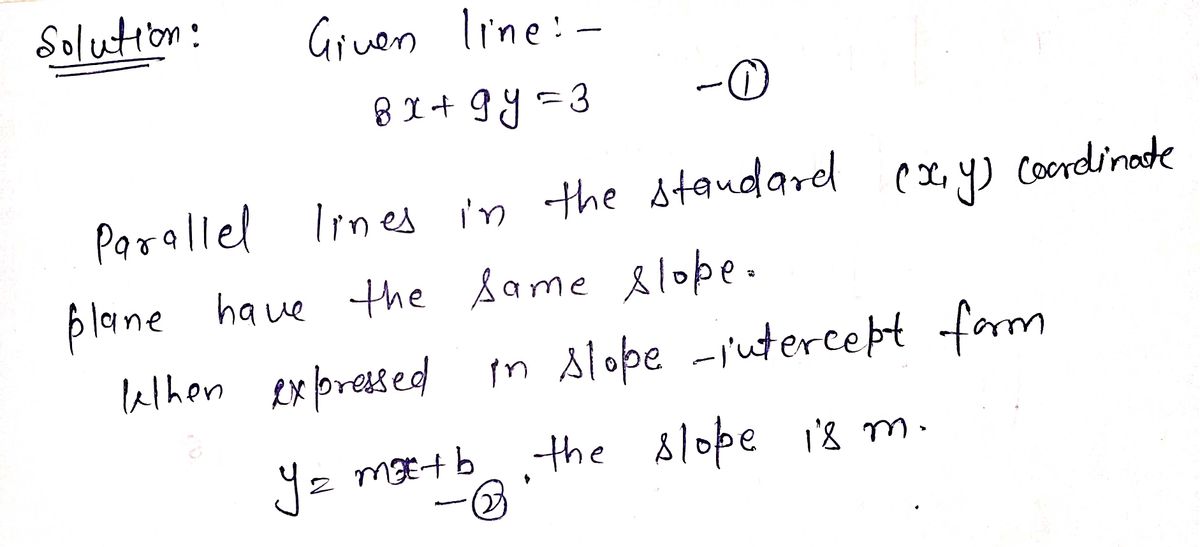 Solution: Given line:-
8x+9y=3 -①
Parallel lines in the standard (x,y) coordinate
plane have the same slope.
When expressed in slope-intercept form
y=mx+b, the slope is m.
-②